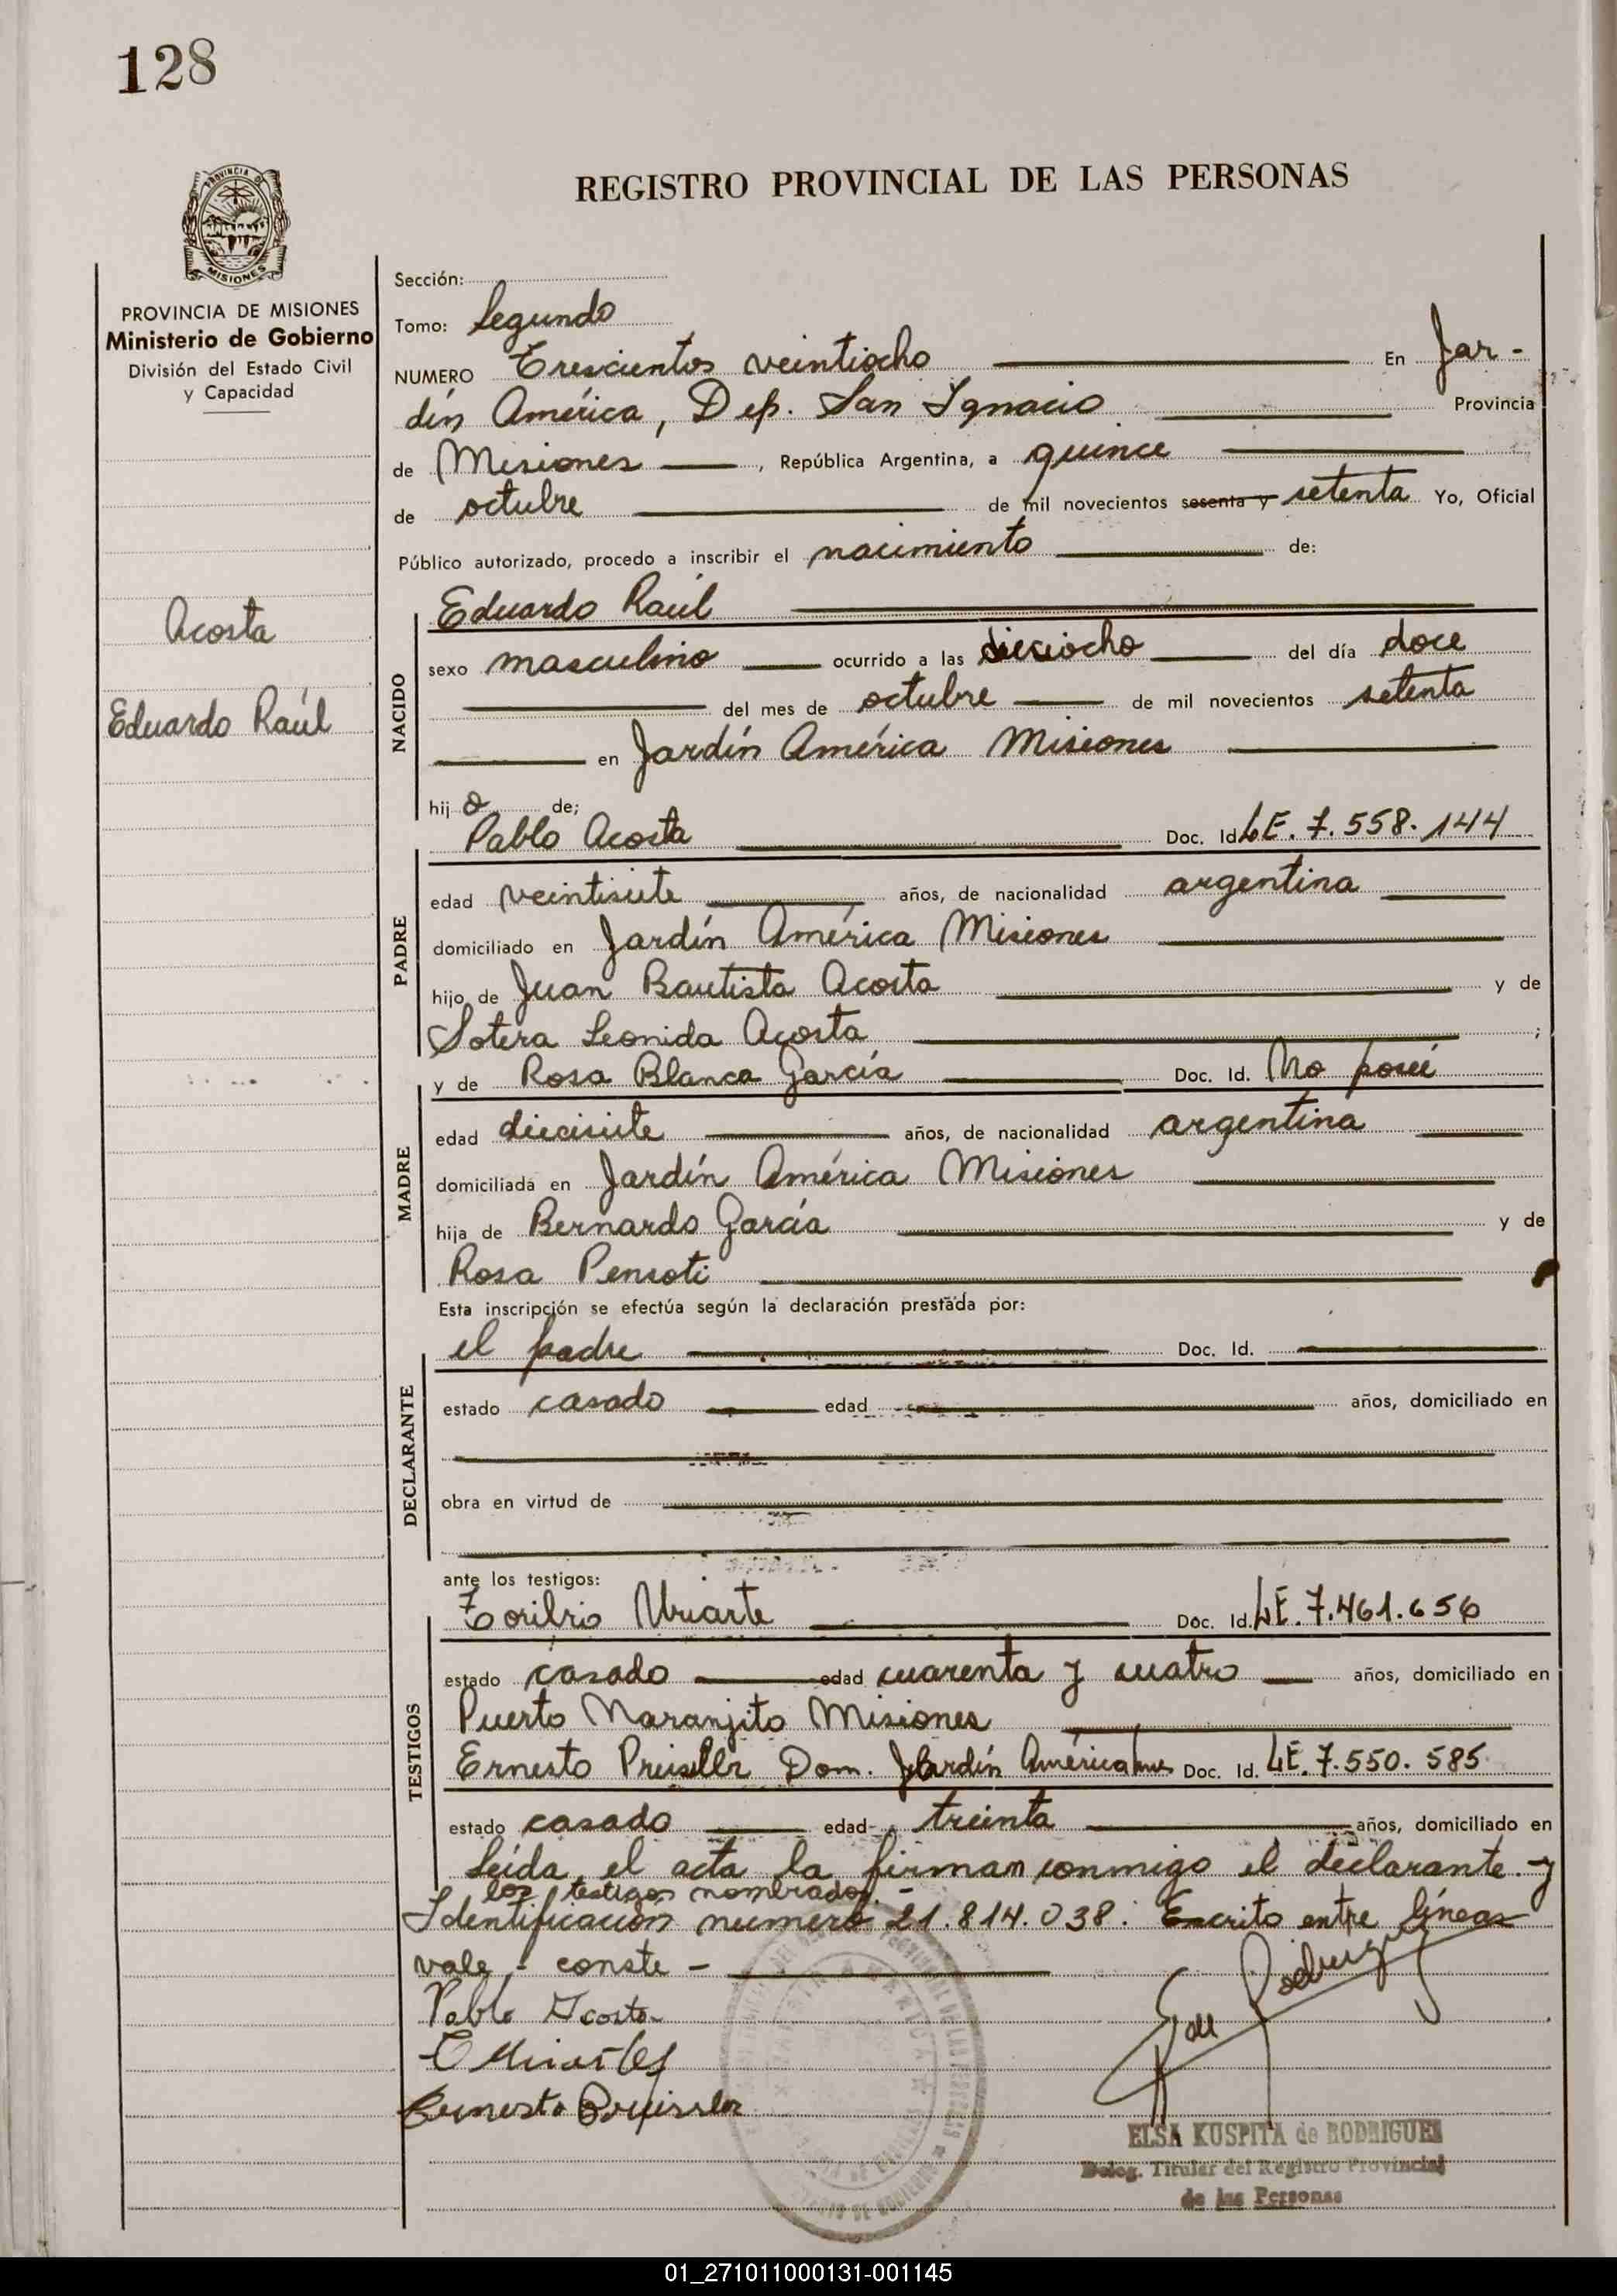 128
REGISTRO PROVINCIAL DE LAS PERSONAS
PROVINCIA DE
MISIONES
PROVINCIA DE MISIONES
Ministerio de Gobierno
División del Estado Civil
y Capacidad
Acosta
Eduardo Raúl
Sección:
Tomo: Segundo
NUMERO Trescientos veintiocho En Jar-
dín América, Dep. San Ignacio Provincia
de Misiones, República Argentina, a quince
de octubre de mil novecientos sesenta y setenta Yo, Oficial
Público autorizado, procedo a inscribir el nacimiento de:
NACIDO
Eduardo Raúl
sexo masculino ocurrido a las dieciocho del día doce
del mes de octubre de mil novecientos setenta
en Jardín América Misiones
hij o de;
PADRE
Pablo Acosta Doc. Id. LE. 7.558.144
edad veintisiete años, de nacionalidad argentina
domiciliado en Jardín América Misiones
hijo de Juan Bautista Acosta y de
Sotera Leonida Acosta ;
MADRE
y de Rosa Blanca García Doc. Id. No posee
edad diecisiete años, de nacionalidad argentina
domiciliada en Jardín América Misiones
hija de Bernardo García y de
Rosa Pensoti
Esta inscripción se efectúa según la declaración prestada por:
DECLARANTE
el padre Doc. Id.
estado casado edad años, domiciliado en
obra en virtud de
ante los testigos:
TESTIGOS
Toribio Uriarte Doc. Id. LE. 7.461.656
estado casado edad cuarenta y cuatro años, domiciliado en
Puerto Naranjito Misiones
Ernesto Dom. Jardín América Doc. Id. LE. 7.550.585
estado casado edad treinta años, domiciliado en
Leída el acta la firman conmigo el declarante y
los testigos nombrados.-
Identificación número 21.814.038. Escrito entre líneas
vale - conste -
Pablo Acosta
Ernesto
Rodriguez
ELSA KUSPITA de RODRIGUEZ
Deleg. Titular del Registro Provincial
de las Personas
01_271011000131-001145